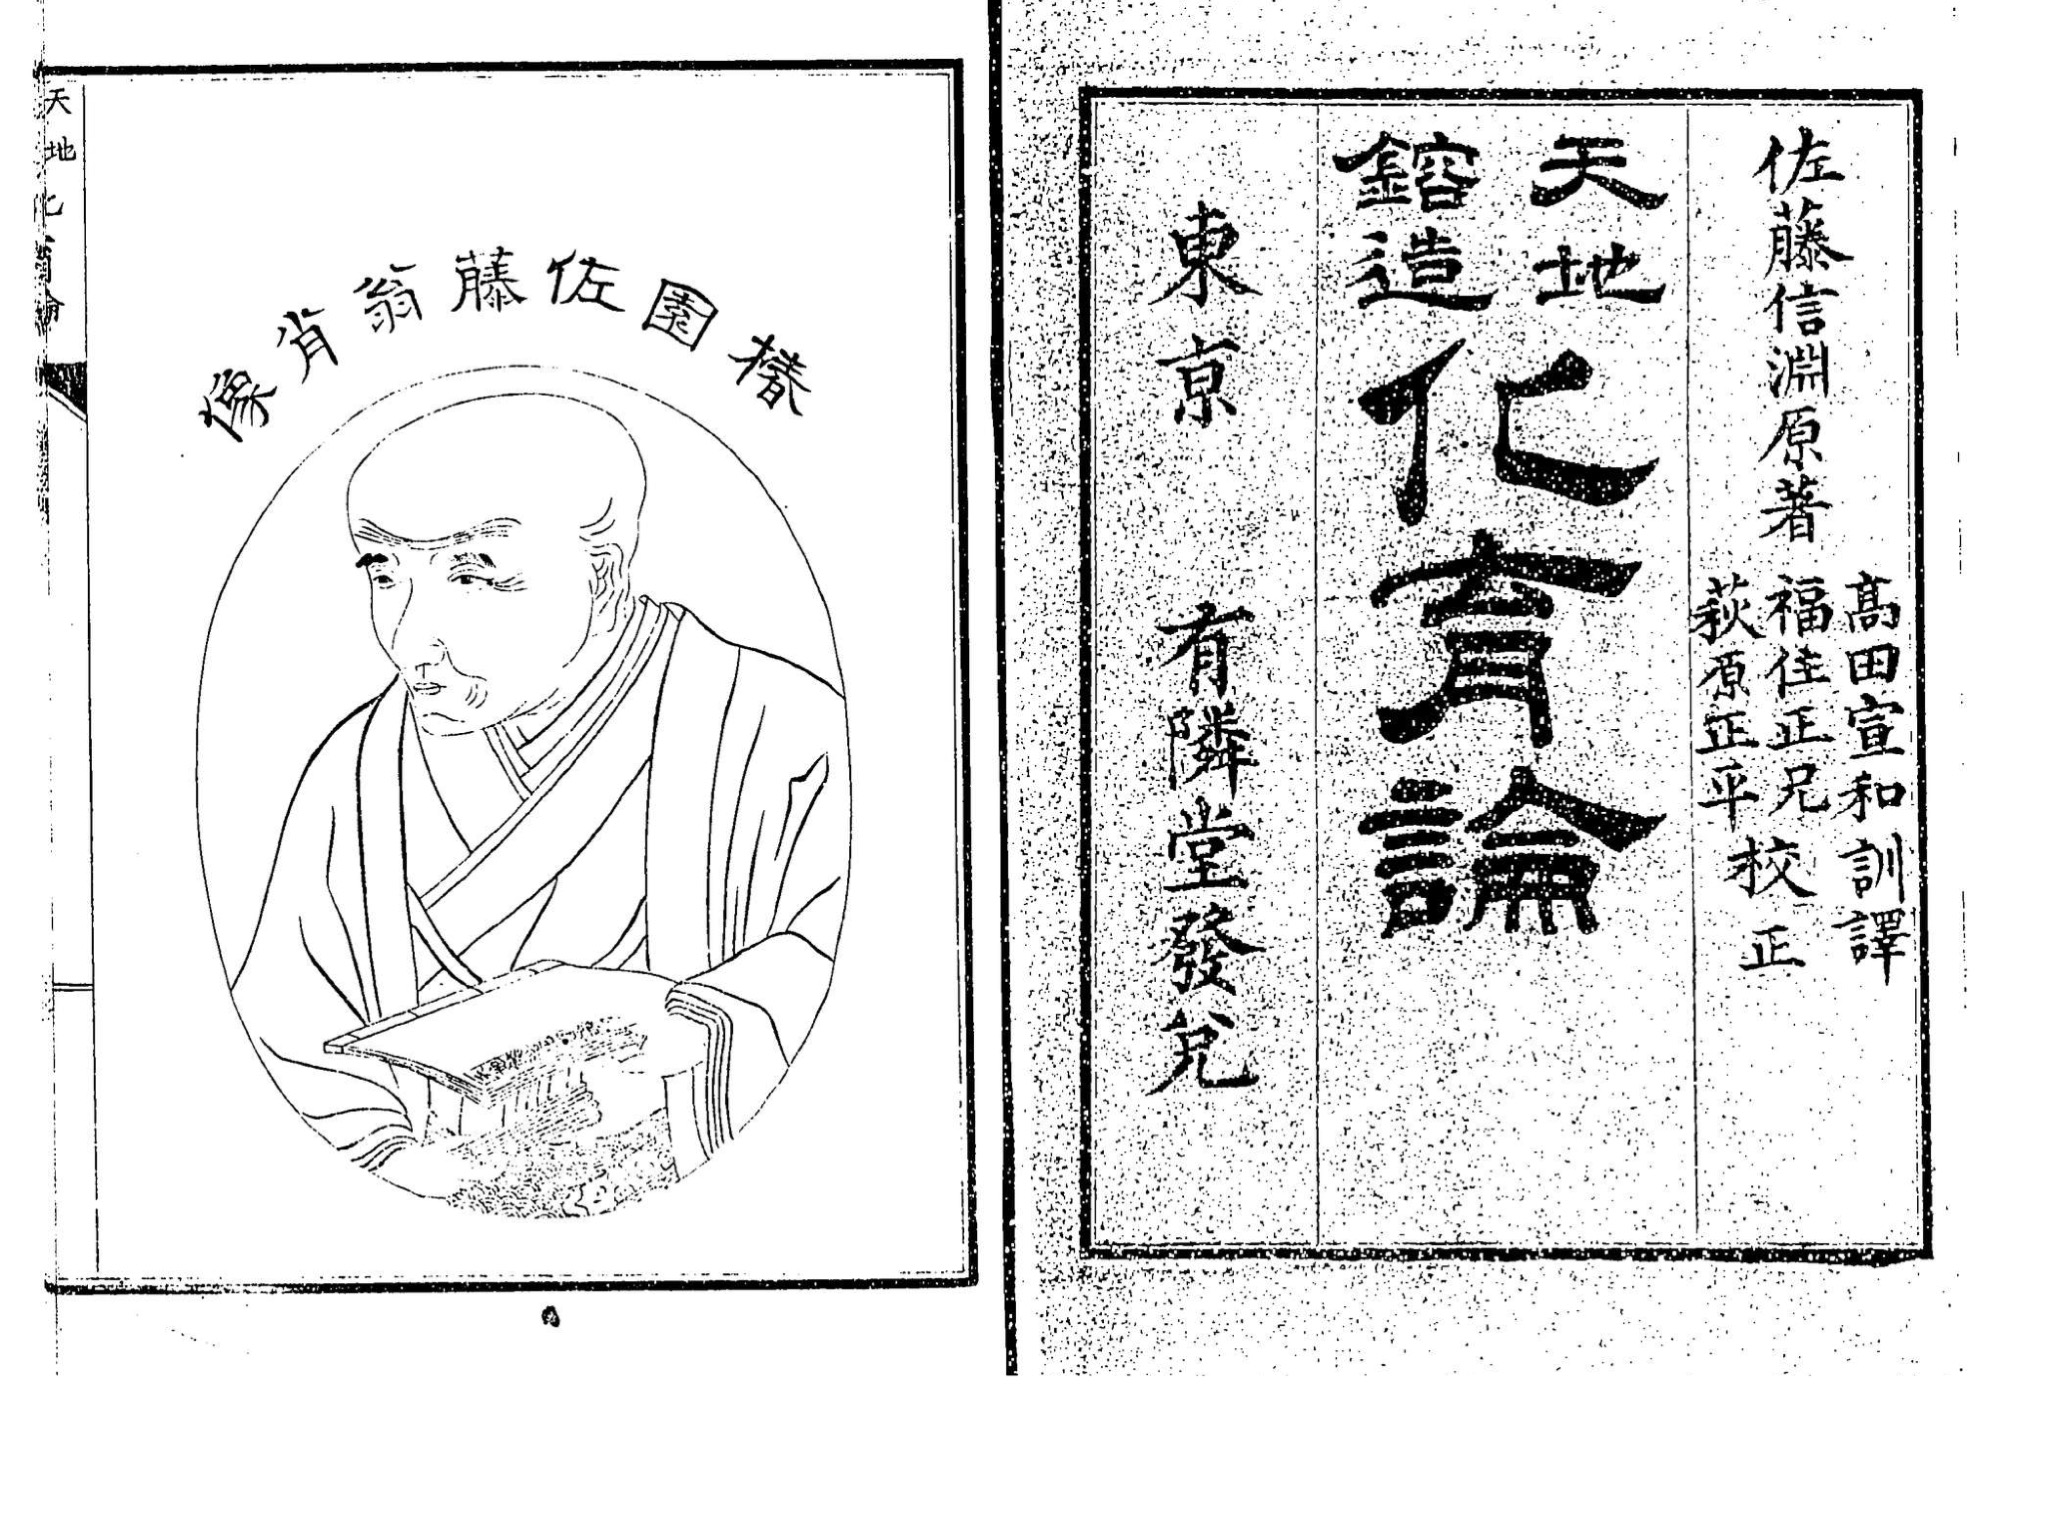 佐藤信淵原著
高田宣和訓譯
福住正兄
萩原正平
校正
天地
鎔造
化育論
東京 有隣堂發兌
椿園佐藤翁肖像
天地化育論